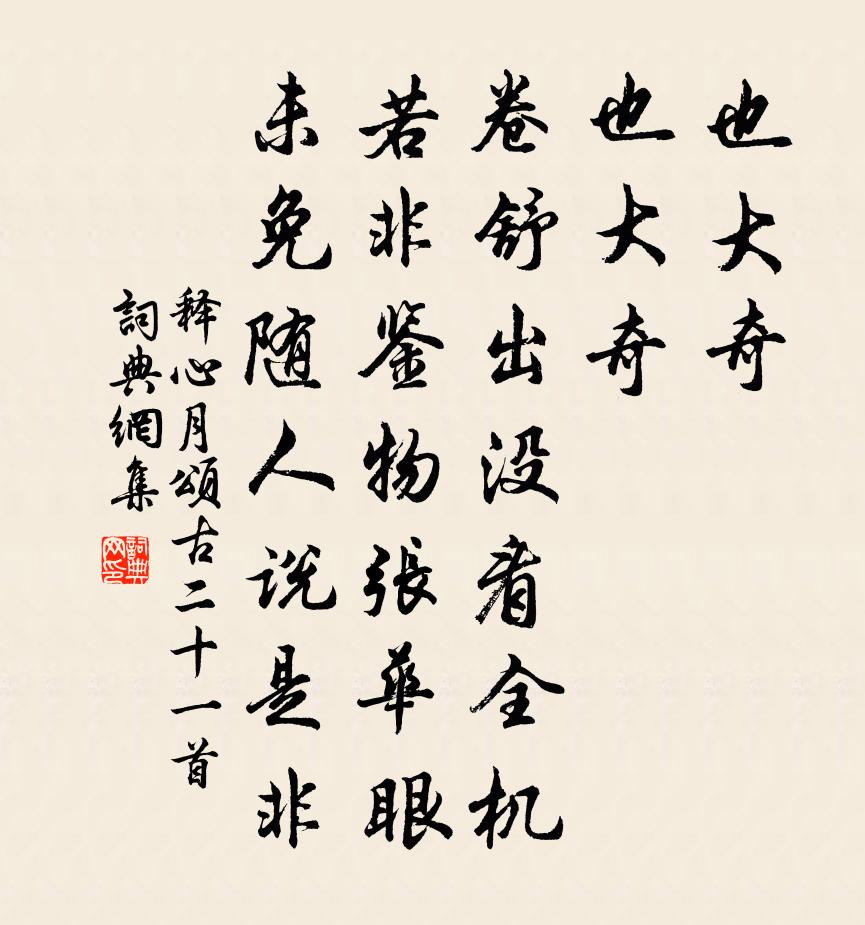 也大奇
也大奇
卷舒出没看全机
若非鉴物張華眼
未免随人说是非
释心月頌古二十一首
詞典網集
詞典网印